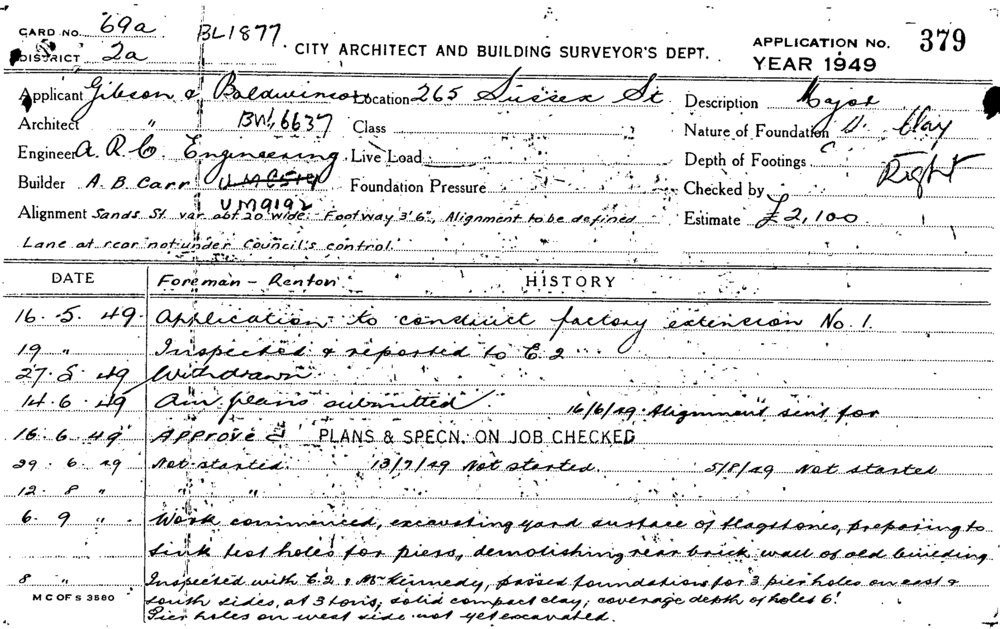 CARD NO. 69a BL1877.
DISTRICT 2a CITY ARCHITECT AND BUILDING SURVEYOR'S DEPT. APPLICATION NO. 379
YEAR 1949
Applicant Gibson & Baldwinson Location 265 Sussex St Description Major
Architect " BW6637 Class Nature of Foundation Clay
Engineer A.R.C. Engineering Live Load Depth of Footings
Builder A.B. Carr UM8514 Foundation Pressure Checked by Right
UM9192
Alignment Sands St. var. abt 20 wide. Footway 3'6", Alignment to be defined Estimate £2,100
Lane at rear not under Council's control.
DATE Foreman - Renton HISTORY
16.5.49. Application to conduct factory extension No. 1.
19 " Inspected & reported to E.2
27.5.49 Withdrawn
14.6.49 Am plans submitted 16/6/49 Alignment sent for
16.6.49 APPROVED PLANS & SPECN. ON JOB CHECKED
29.6.49 Not started. 13/7/49 Not started. 5/8/49 Not started
12.8 " " "
6.9 " Work commenced, excavating yard surface of flagstones, preparing to
sink test holes for piers, demolishing rear brick wall of old building
8 " Inspected with E.2 & Mr Kennedy, passed foundations for 3 pier holes on east &
south sides, at 3 tons; solid compact clay; coverage depth of holes 6'.
Pier holes on west side not yet excavated.
M C OF S 3580